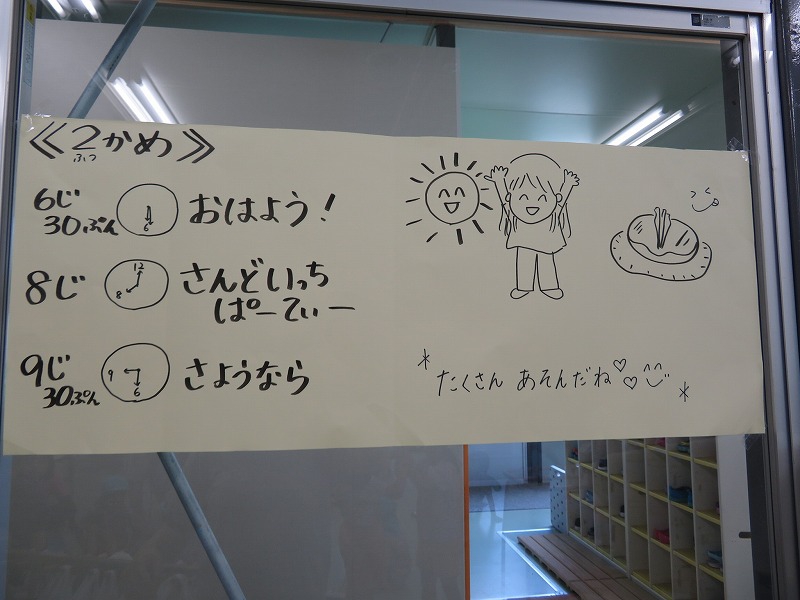 ≪2かめ≫
ふつ
6じ
30ぷん
6
おはよう!
8じ
12
8
さんどいっち
ぱーてぃー
9じ
30ぷん
9
6
さようなら
*たくさん あそんだね♡♡*